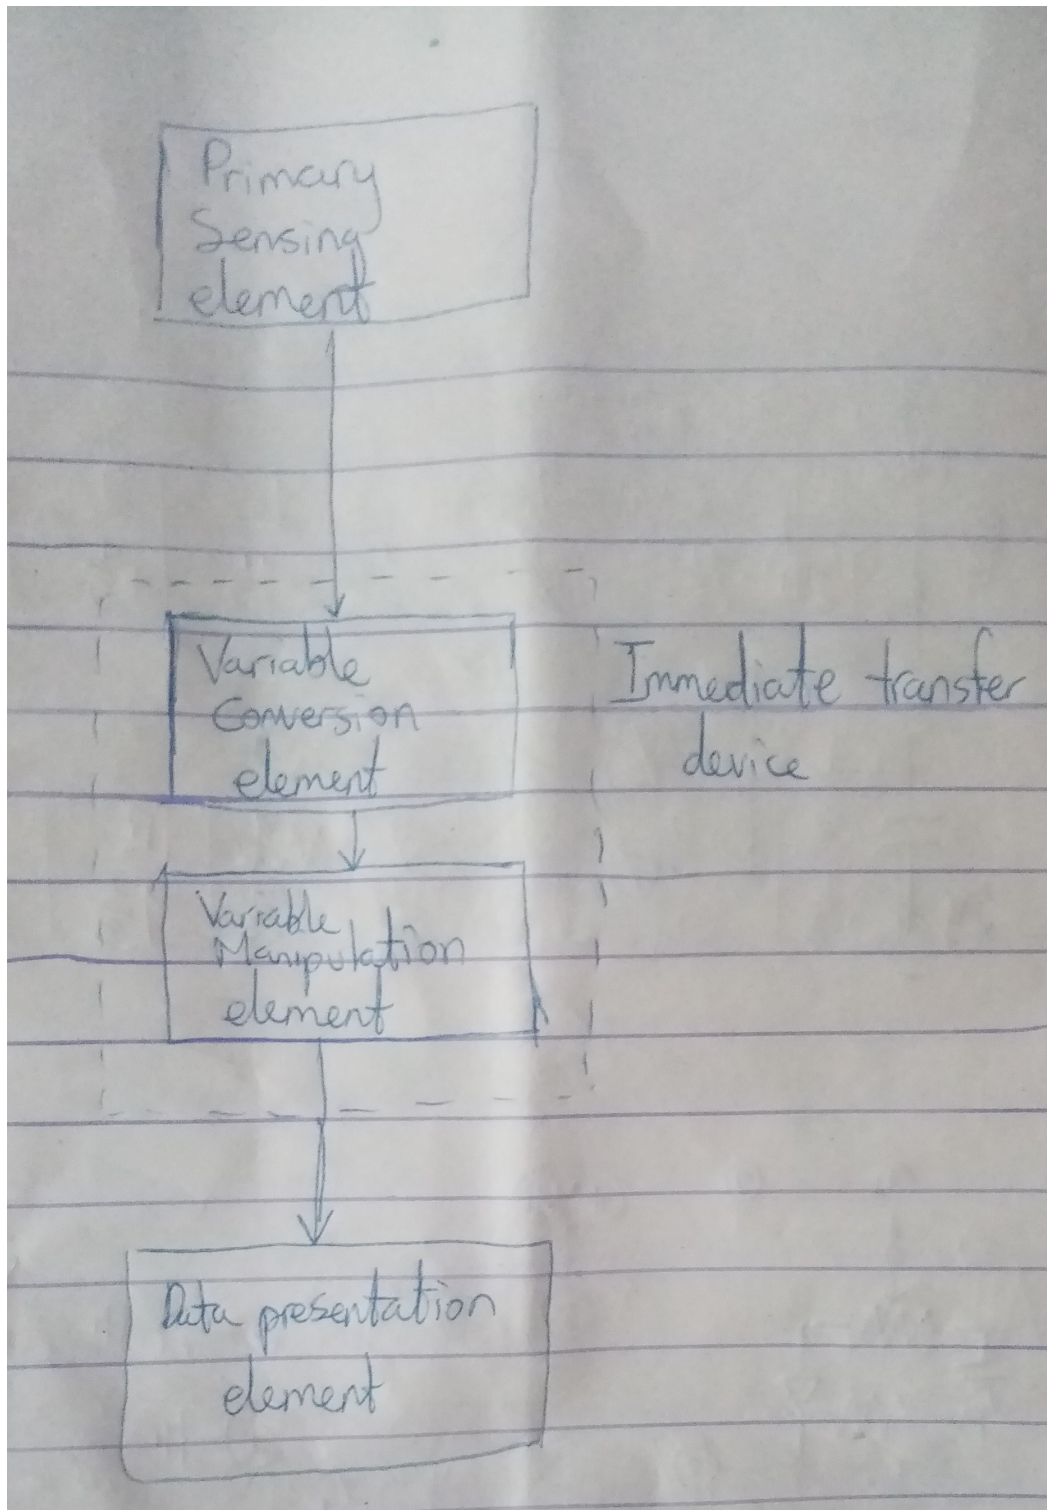 Primary
Sensing
element
Variable
Conversion
element
Immediate transfer
device
Variable
Manipulation
element
Data presentation
element